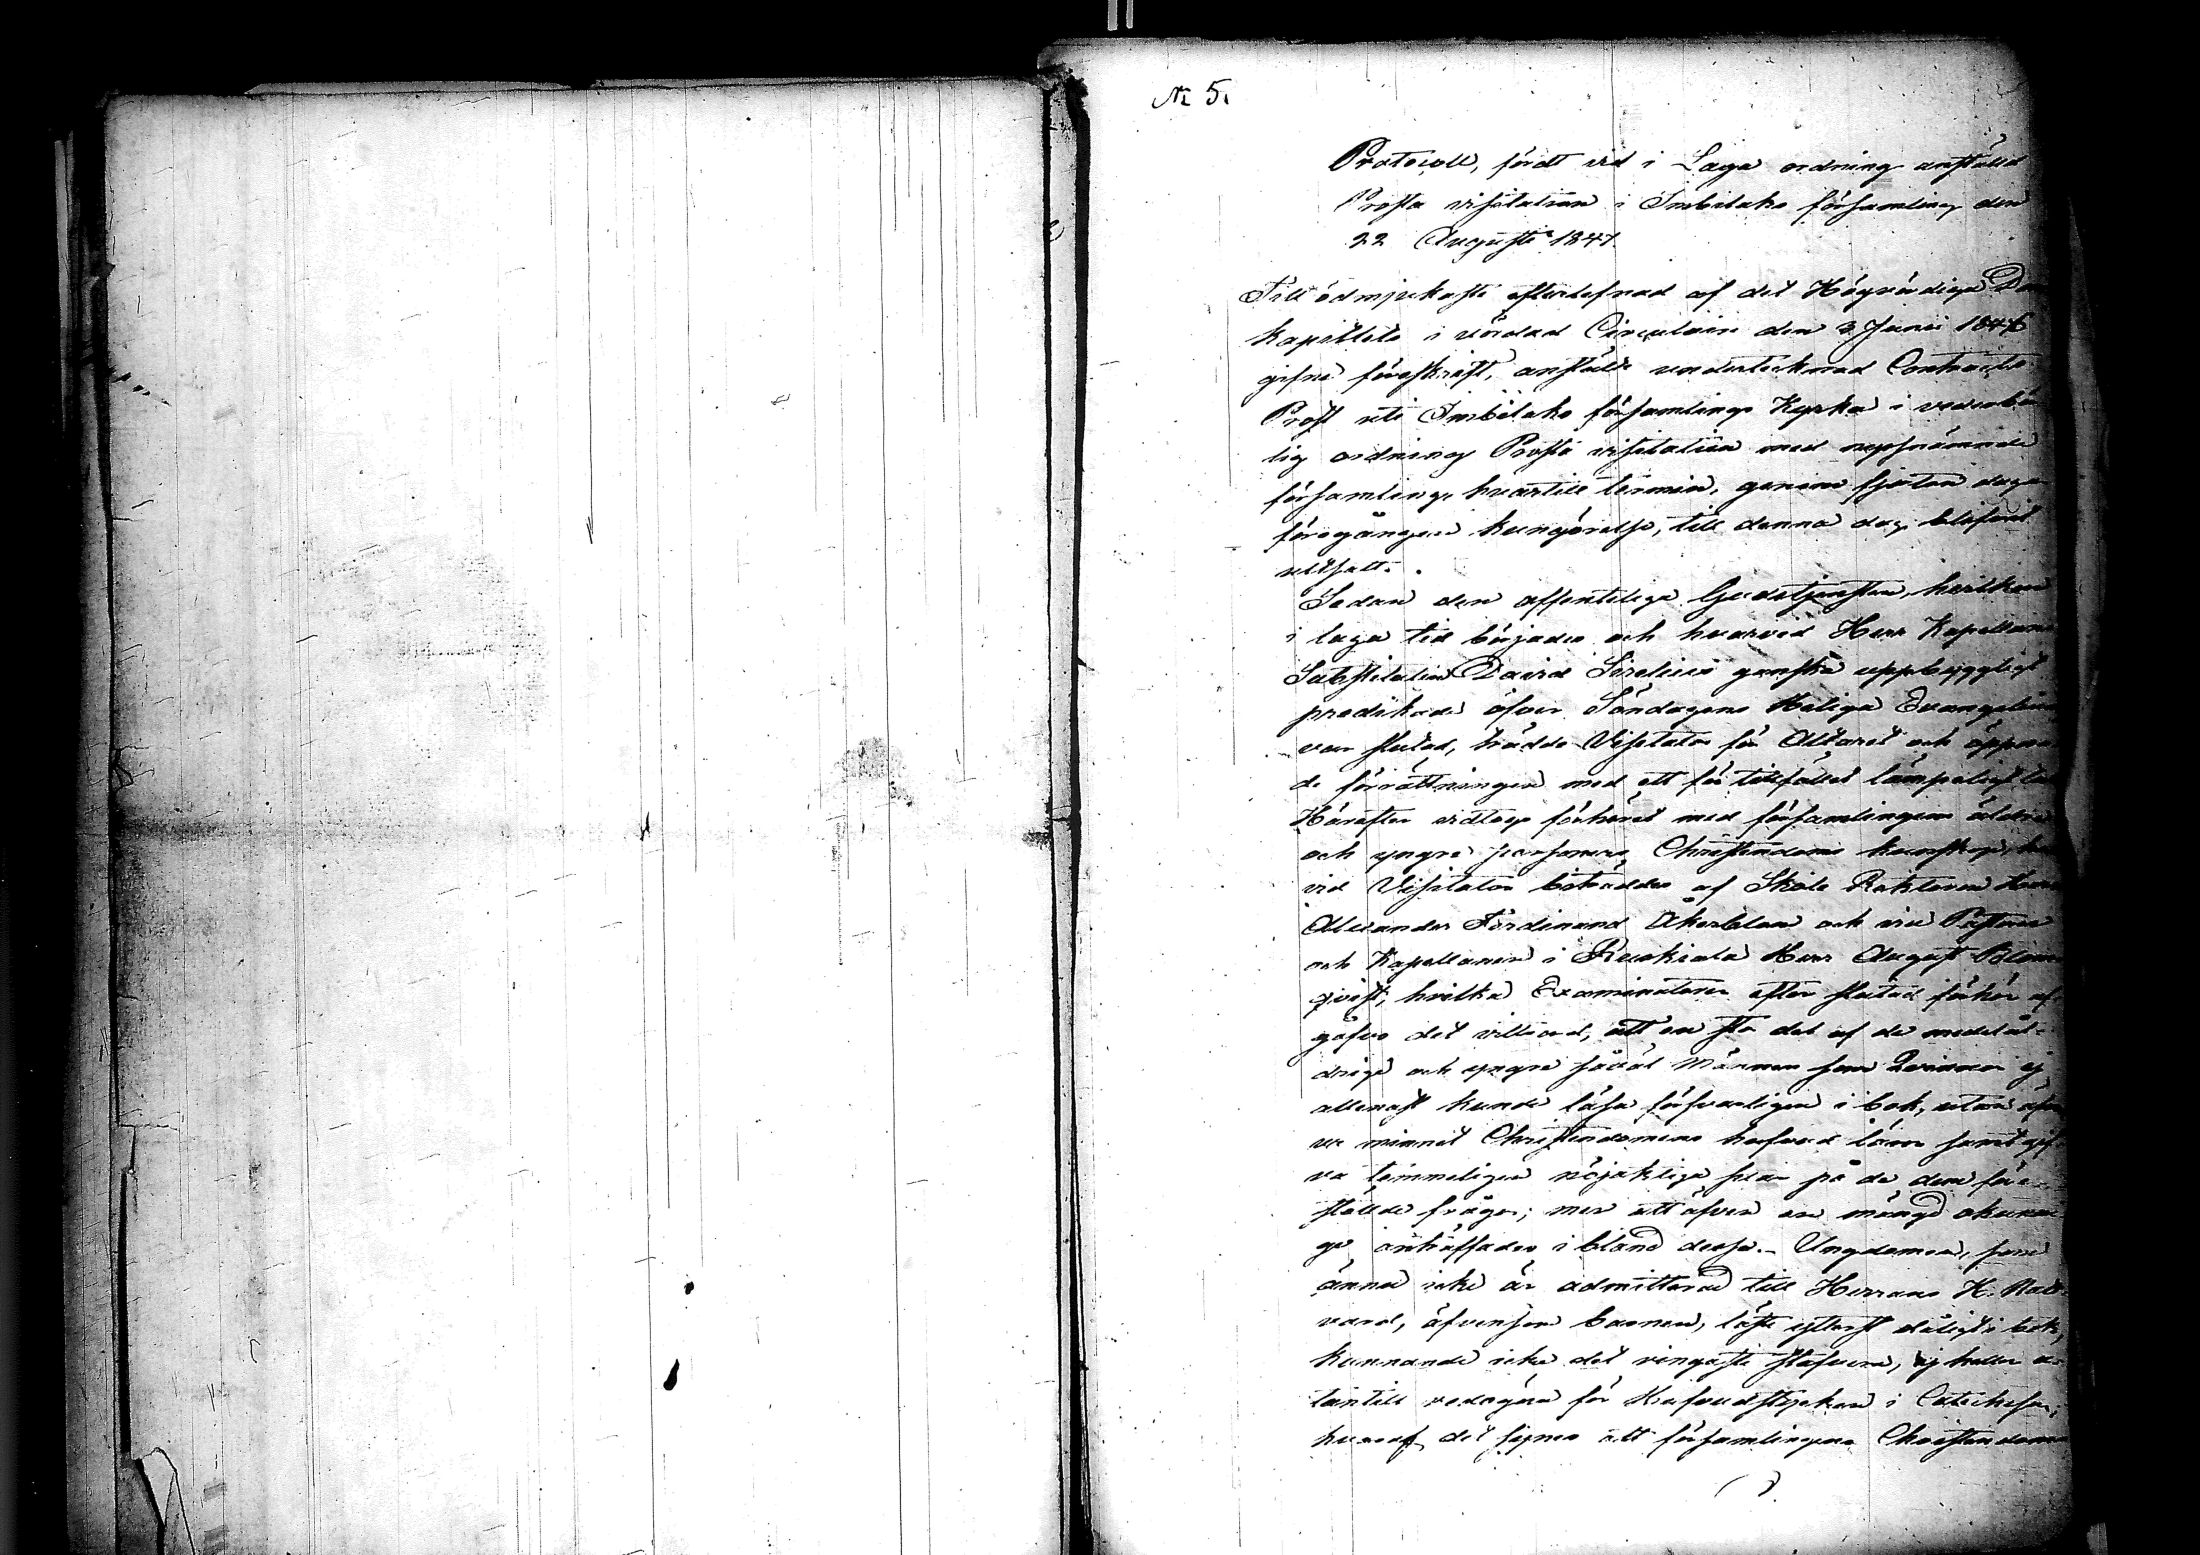 № 5.
Protocoll, fördt vid i Laga ordning anstäld
Prosta visitation i Imbilaks församling den
22 Augusti 1847.
Till ödmjukaste efterlefnad af det Högvördiga Dom
kapitlets i vördad Circulaire den 3 Junii 1846
gifne föreskrift, anstälde undertecknad Contracts
Prost uti Imbilaks församlings Kyrka i vederbör
lig ordning Prosta visitation med uppenämnde
församling, hvartill termin, genom fjorton dagar
föregången kungörelse, till denna dag blifvit
utsatt.
Sedan den offentliga Gudstjensten, hvilken
i laga tid börjades och hvarvid Herr Kapellans
Substituten David Sirelius ganska uppbyggligt
predikade öfver Söndagens Heliga Evangelium
var slutad, trädde Visitator för Altaret och öppna
de förrättningen med ett för tillfället lämpeligt tal
Härefter vidtogs förhöret med församlingens äldre
och yngre personers Christendoms kunskap, hvar
vid Visitator biträddes af Skole Rektoren Herr
Alexander Ferdinand Åkerblom och vice Pastorn
och Kapellanen i Ruskiala Herr August Blom
qvist, hvilka Examinatorer efter slutad förhör af
gåfvo det vittnord, att en stor del af de medelål-
drige och yngre såväl Männer som Qvinnor ej
allenast kunde läsa försvarligen i bok, utan äfven
ur minnet Christendomens hufvud läror samt gif
va temmeligen nöjaktiga svar på de dem före
stälde frågor; men att äfven en mängd okunni
ge anträffades i bland dessa. Ungdomen, som
ännu icke är admitterad till Herrans H. Natt
vard, äfvensom barnen, läste ytterst dåligt i bok,
kunnande icke det ringaste stafvera, ej heller u-
tantill redogöra för Hufvudstycken i Catechesen;
hvaraf det synes att församlingens Christendoms